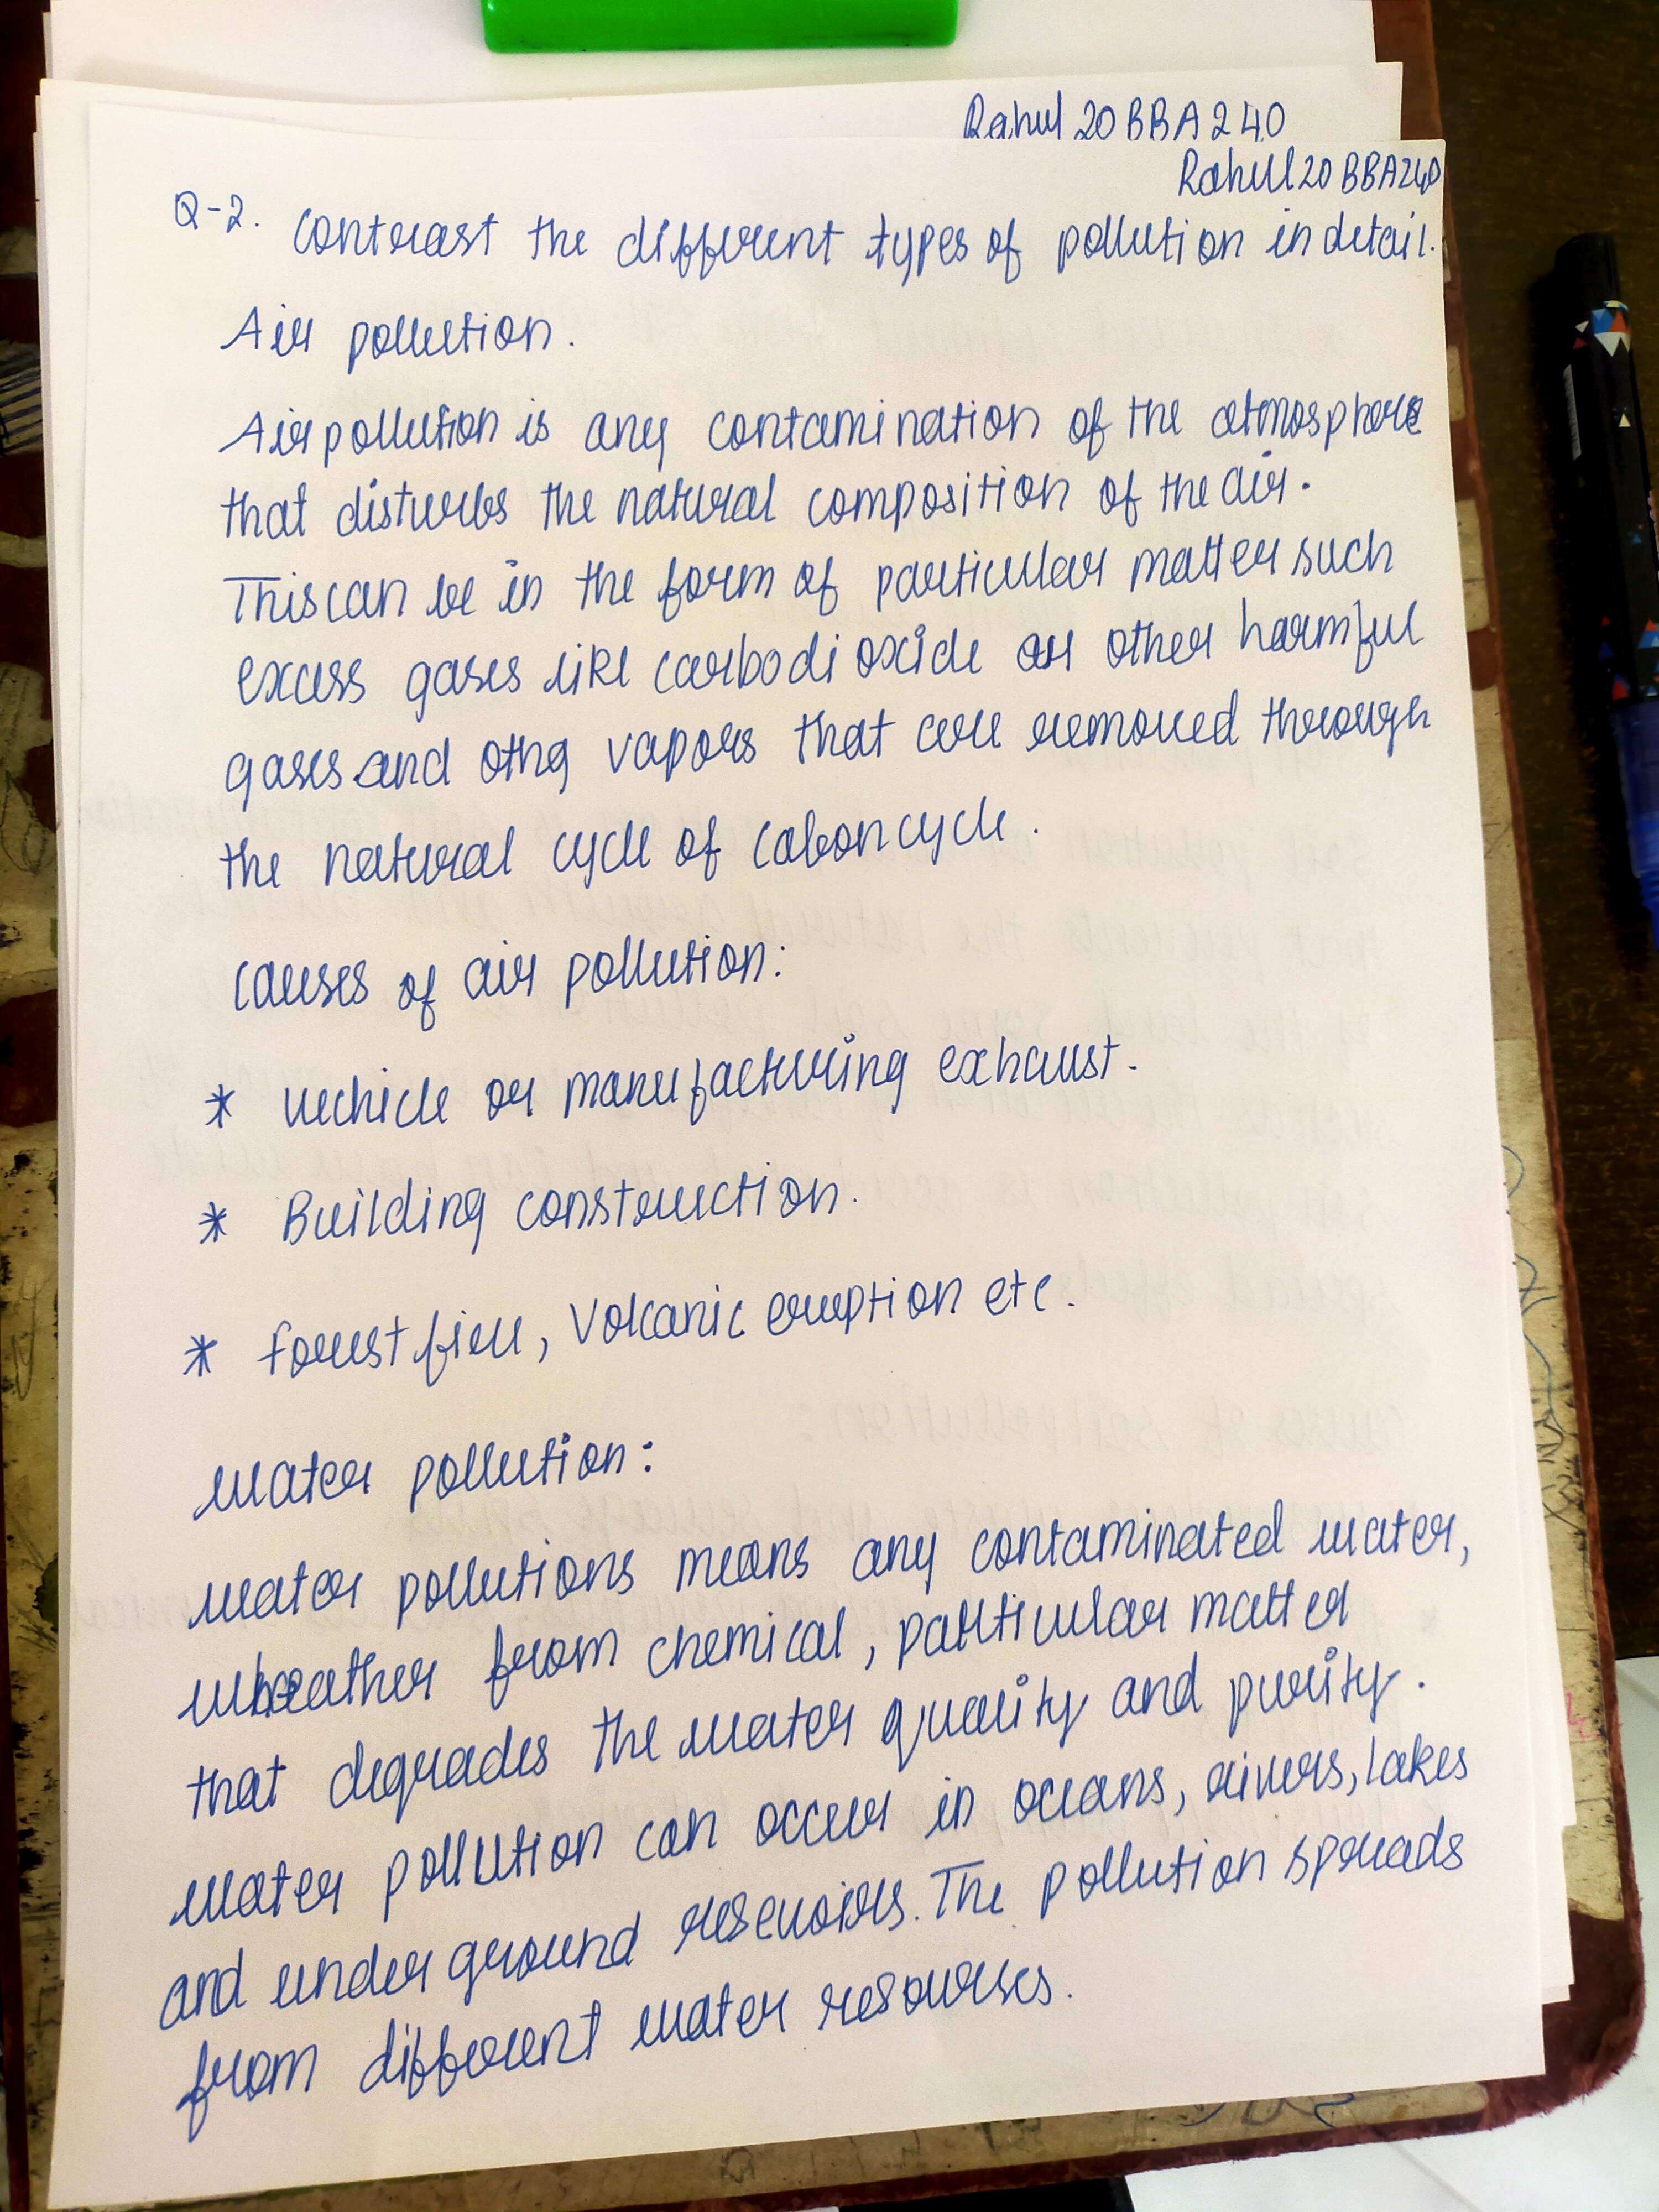 Rahul 20BBA240
Rahul 20BBA240
Q-2. Contrast the different types of pollution in detail.
Air pollution.
Air pollution is any contamination of the atmosphere
that disturbs the natural composition of the air.
This can be in the form of particular matter such
excess gases like carbodioxide or other harmful
gases and othg vapors that are removed through
the natural cycle of cabon cycle.
Causes of air pollution:
* vechicle or manufacturing exhaust.
* Building construction.
* Forest fire, Volcanic eruption etc.
Water pollution:
Water pollutions means any contaminated water,
wheather from chemical, particular matter
that degrades the water quality and purity.
Water pollution can occur in oceans, rivers, lakes
and under ground resevoirs. The pollution spreads
from different water resourses.